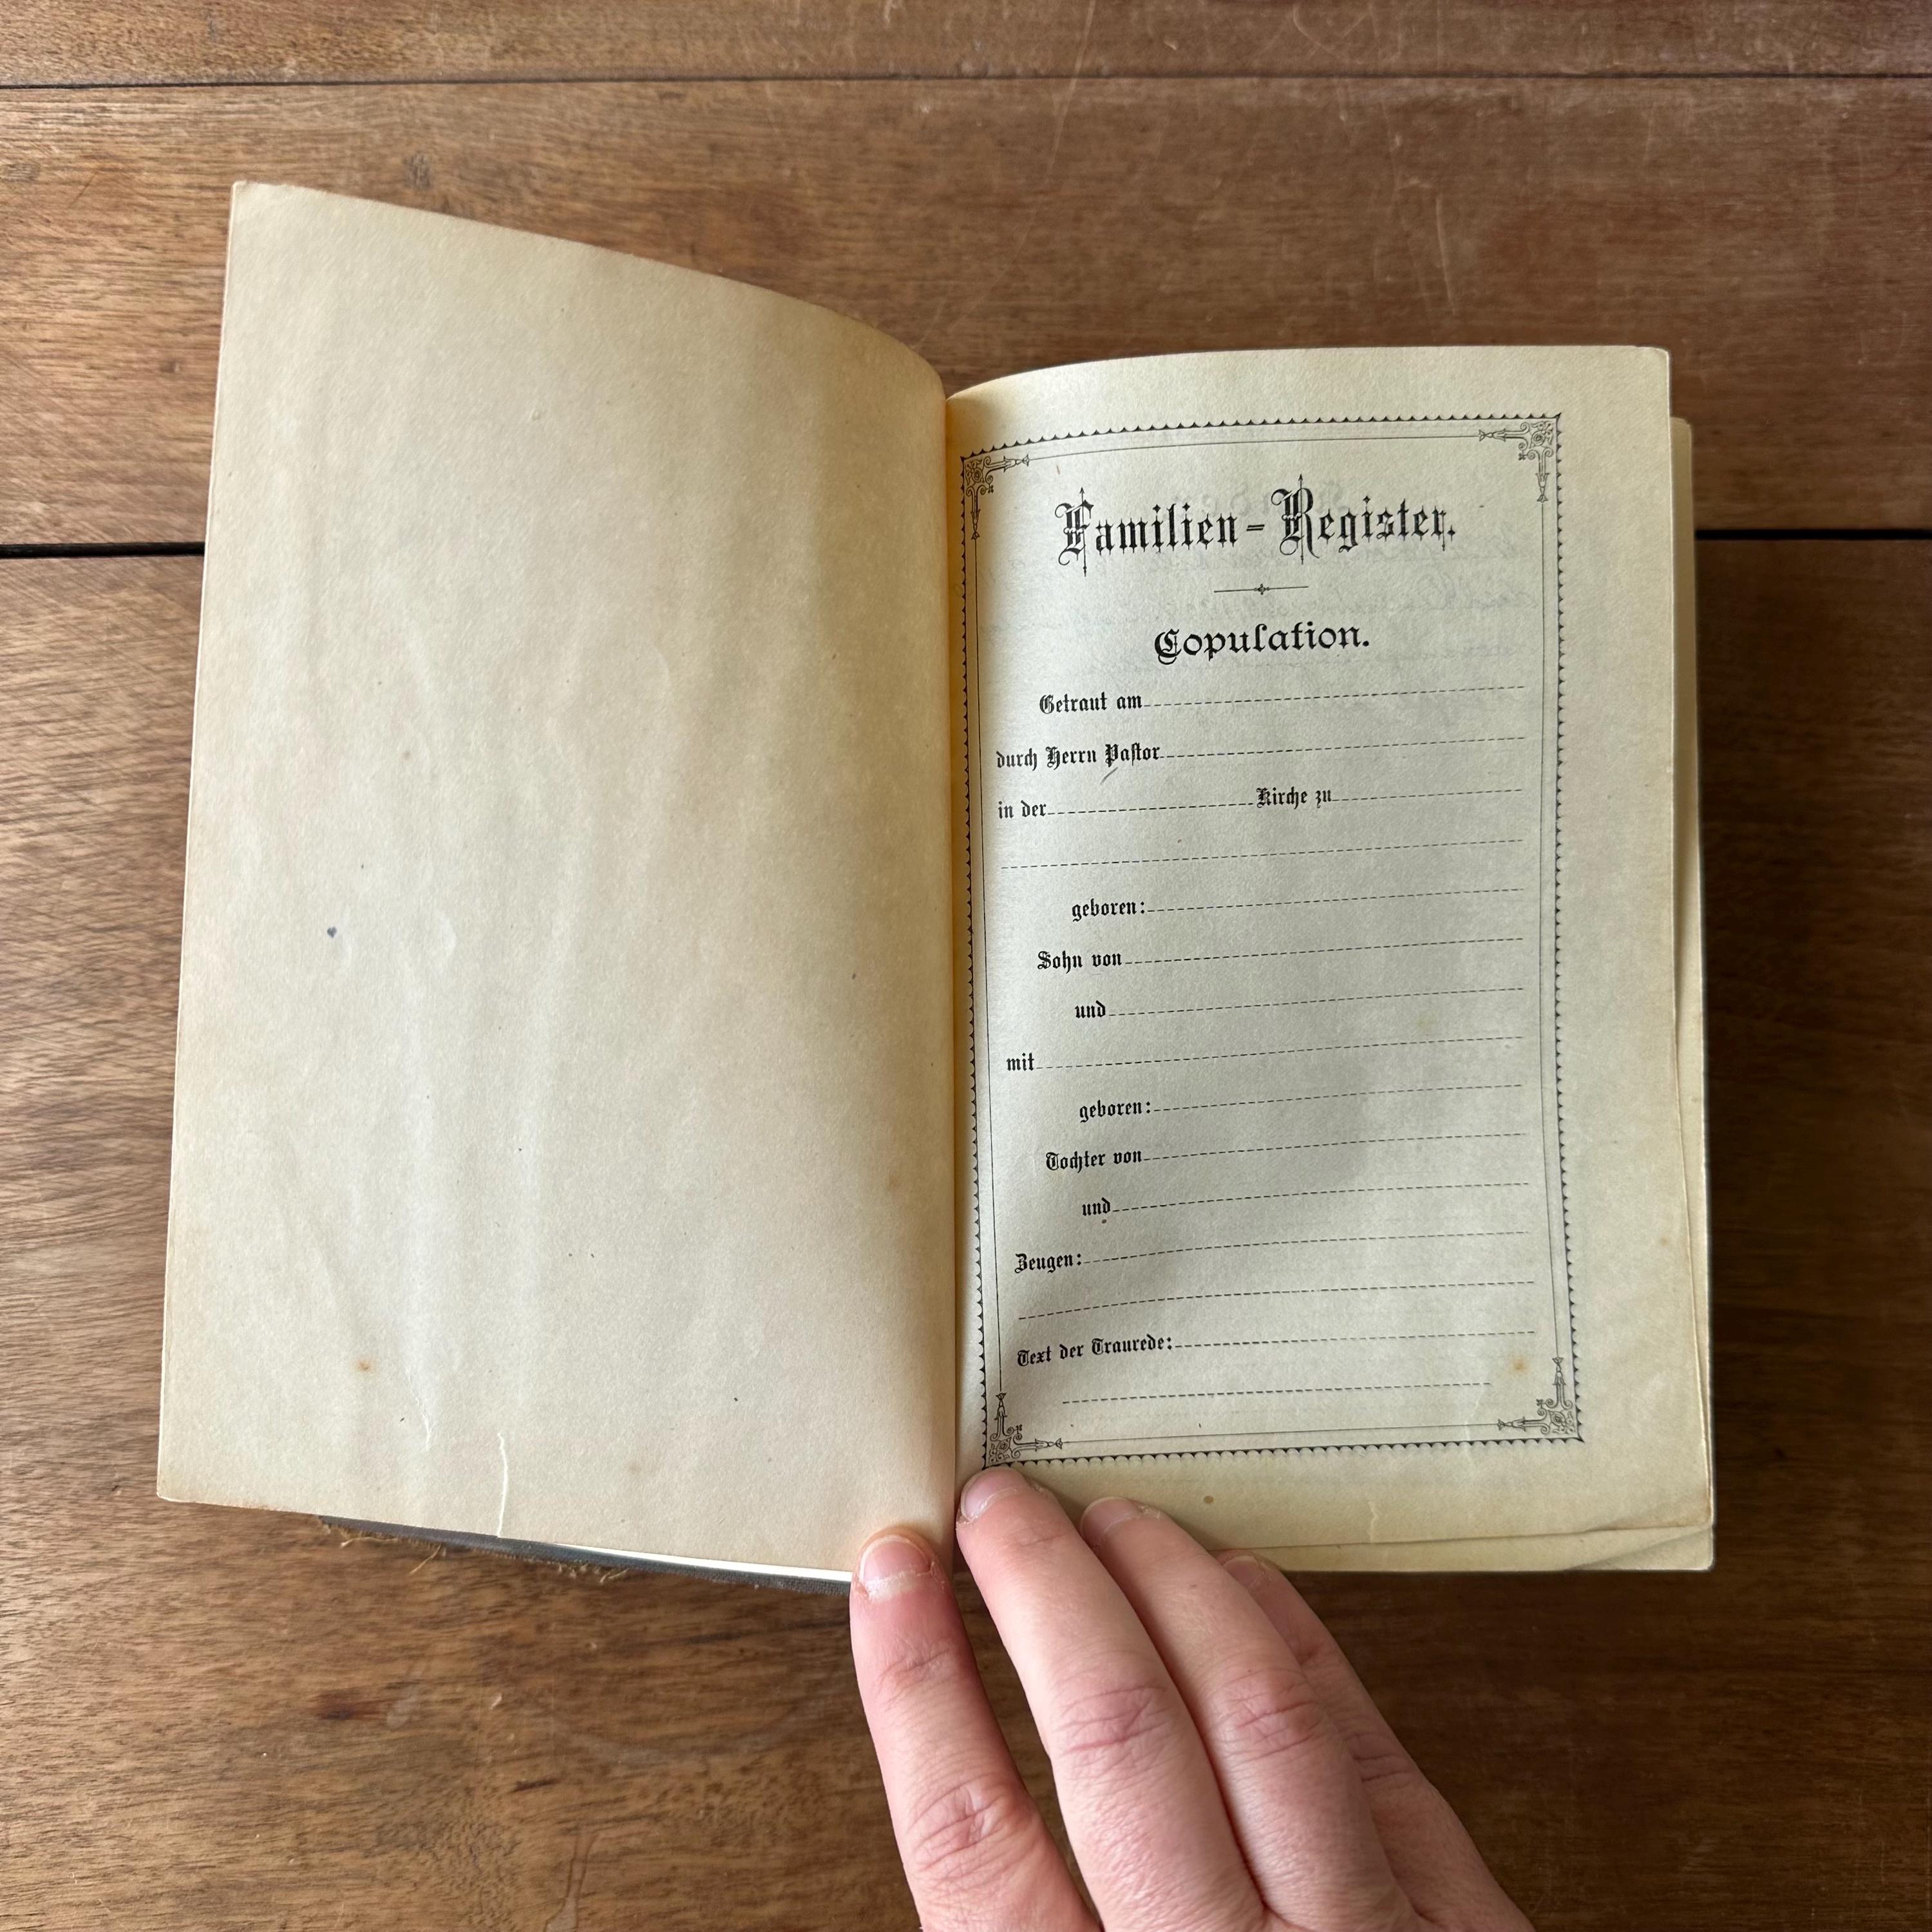 Familien-Register.
Copulation.
Getraut am
durch Herrn Pastor
in der Kirche zu
geboren:
Sohn von
und
mit
geboren:
Tochter von
und
Zeugen:
Text der Traurede: